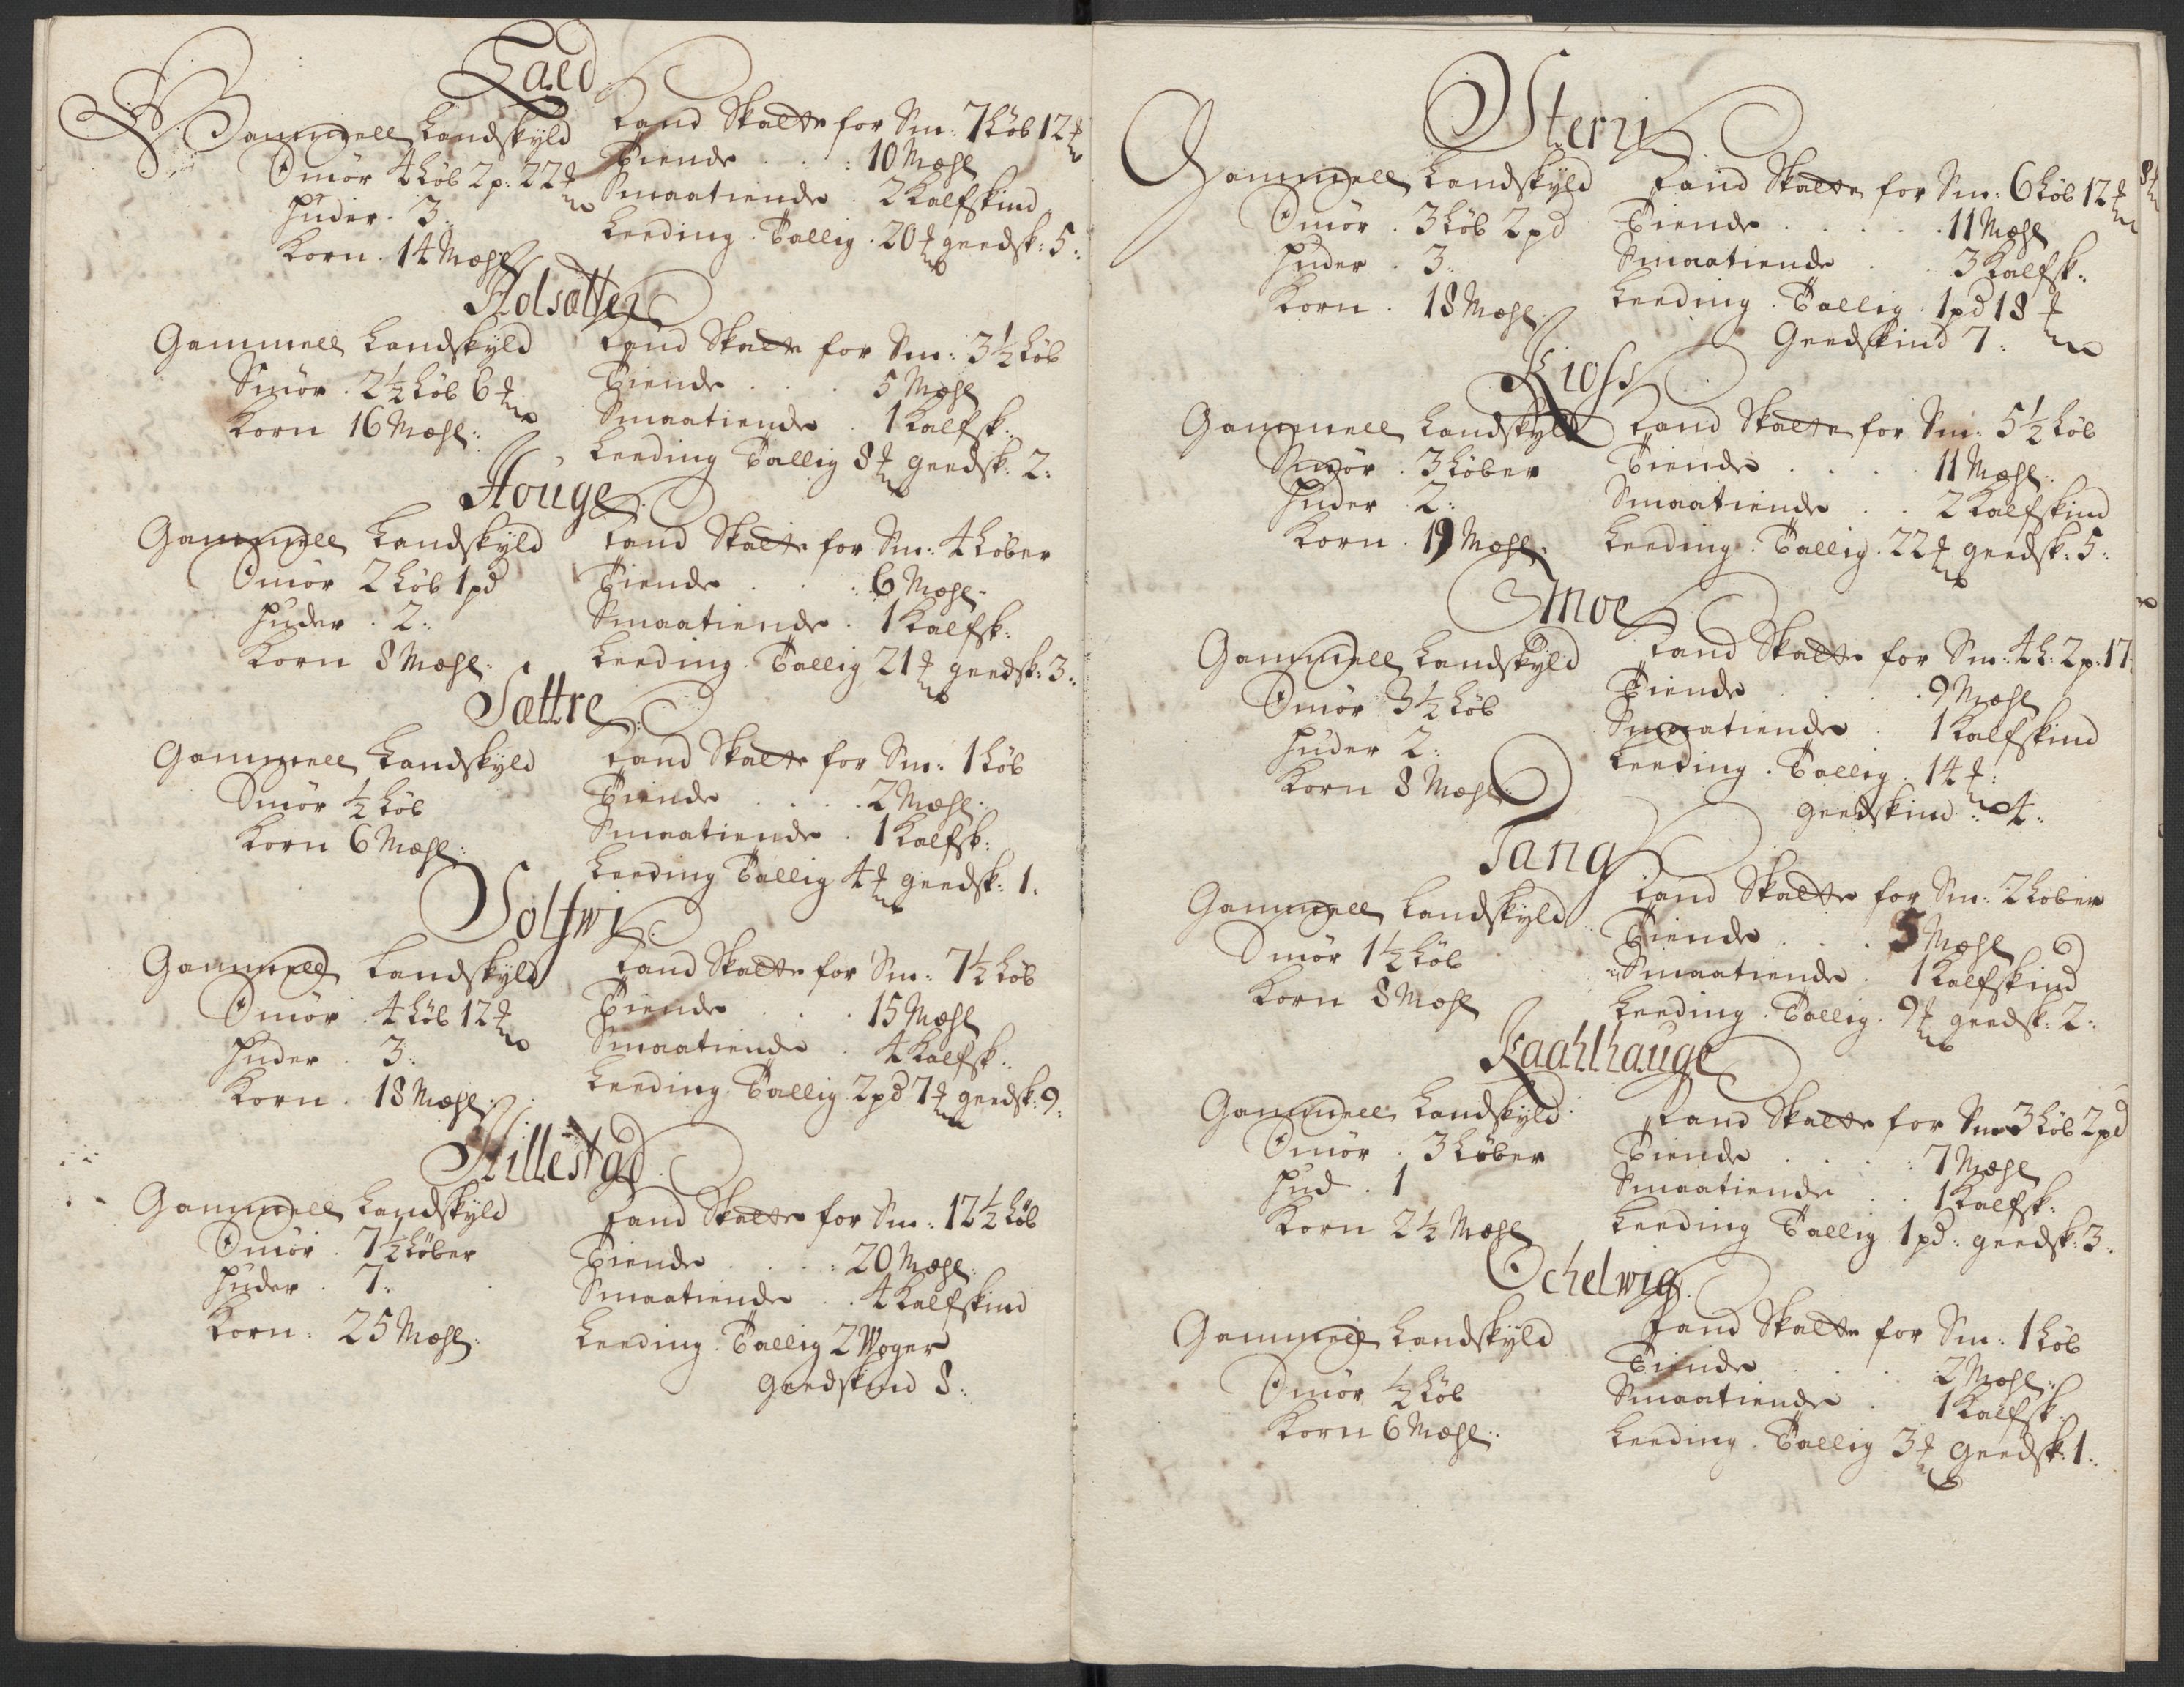 Laed
Gammell Landskyld
Smör 4 Löb 2 p: 22 ℔
Huder . 3 :
Korn . 14 Mæhl
Land Skatte for Sm: 7 Löb 12 ℔
Tiende . . : 10 Mæhl
Smaatiende . 2 Kalfskind
Leeding . Tallig . 20 ℔ geedsk: 5 :
Holsætter
Gammell Landskyld
Smör . 2½ Löb 6 ℔
Korn 16 Mæhl :
Land Skatte for Sm: 3½ Löb
Tiende . . . 5 Mæhl
Smaatiende . 1 Kalfsk:
Leeding Tallig 8 ℔ geedsk: 2 :
Houge
Gammell Landskyld
Smör 2 Löb 1 pd
Huder . 2 :
Korn 8 Mæhl :
Land Skatte for Sm: 4 Löber
Tiende . . : 6 Mæhl
Smaatiende . 1 Kalfsk:
Leeding . Tallig 21 ℔ geedsk: 3 :
Sættre
Gammell Landskyld
Smör ½ Löb
Korn 6 Mæhl :
Land Skatte for Sm: 1 Löb
Tiende . . . . 2 Mæhl :
Smaatiende . 1 Kalfsk:
Leeding Tallig 4 ℔ geedsk: 1 .
Solfwi
Gammell Landskyld
Smör . 4 Löb 12 ℔
Huder . 3 :
Korn . 18 Mæhl :
Land Skatte for Sm: 7½ Löb
Tiende . . . 15 Mæhl
Smaatiende . 4 Kalfsk:
Leeding . Tallig 2 pd 7 ℔ geedsk: 9 :
Hillestad
Gammell Landskyld
Smör . 7½ Löber
Huder . 7 :
Korn . 25 Mæhl :
Land Skatte for Sm: 12½ Löb
Tiende . . . : 20 Mæhl :
Smaatiende . . 4 Kalfskind
Leeding . Tallig 2 Woger
Geedskind 8 :
Steri
Gammell Landskyld
Smör . 3 Löb 2 pd
Huder . 3 :
Korn . 18 Mæhl :
Land Skatte for Sm: 6 Löb 12 ℔
Tiende . . . . 11 Mæhl
Smaatiende . . 3 Kalfsk:
Leeding . Tallig . 1 pd 18 ℔
Geedskind 7 :
Kioss
Gammell Landskyld
Smör . 3 Löber
Huder 2 :
Korn . 19 Mæhl .
Land Skatte for Sm: 5½ Löb
Tiende . . . . 11 Mæhl :
Smaatiende . . 2 Kalfskind
Leeding . Tallig . 22 ℔ geedsk: 5 :
Moe
Gammell Landskyld
Smör 3½ Löb
Huder 2 :
Korn 8 Mæhl
Land Skatte for Sm: 4 L: 2 p: 17 :
Tiende . . . . 9 Mæhl
Smaatiende . 1 Kalfskind
Leeding . Tallig . 14 ℔ :
geedskind : 4 :
Tang
Gammell Landskyld
Smör 1½ Löb
Korn 8 Mæhl
Land Skatte for Sm: 2 Löber
Tiende . . . 5 Mæhl
Smaatiende . 1 Kalfskind
Leeding . Tallig . 9 ℔ geedsk: 2 :
Kaahlhauge
Gammell Landskyld
Smör . 3 Löber
Hud . 1
Korn 2½ Mæhl
Land Skatte for Sm 3 Löb 2 pd
Tiende . . . : 7 Mæhl
Smaatiende . . 1 Kalfsk:
Leeding Tallig 1 pd : geedsk: 3 .
Ochelwig
Gammell Landskyld
Smör ½ Löb
Korn 6 Mæhl :
Land Skatte for Sm: 1 Löb
Tiende . . . . 2 Mæhl :
Smaatiende . 1 Kalfsk:
Leeding . Tallig 3 ℔ Geedsk: 1 :